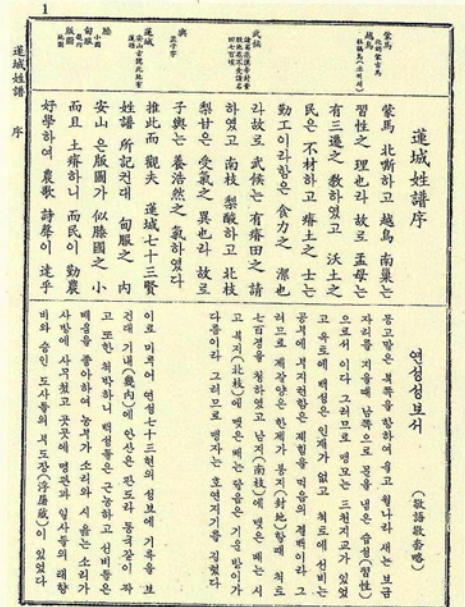 1
蒙馬 北胡蒙古馬
越鳥
武候
輿 孟子字
蓮城
滕 小國
甸服 畿內
版圖 地圖
蓮城姓譜序
蒙馬 北嘶하고 越鳥 南巢는
習性之 理也라 故로 孟母는
有三遷之 敎하였고 沃土之
民은 不材하고 瘠土之 士는
勤工이라함은 食力之 潔也
라故로 武候는 有瘠田之 請
하였고 南枝 梨酸하고 北枝
梨甘은 受氣之 異也라 故로
子輿는 養浩然之 氣하였다
推此而 觀夫 蓮城七十三賢
姓譜 所記컨대 甸服之 內
安山은 版圖가 似滕國之 小
而且 土瘠하니 而民이 勤農
好學하여 農歌 詩聲이 達乎
연성성보서 (敬語敬稱略)
몽고말은 북쪽을 향하여 울고 월나라 새는 보금
자리를 지을때 남쪽으로 문을 냄은 습성(習性)
으로서 이다 그러므로 맹모는 삼천지교가 있었
고 옥토에 백성은 인재가 없고 척토에 선비는
공부에 부지런함은 제힘을 먹음의 결백이라 그
러므로 제갈양은 한제가 봉지(封地)할때 척토
七百경을 청하였고 남지(南枝)에 맺은 배는 시
고 북지(北枝)에 맺은 배는 닮음은 기운 받이가
다름이라 그러므로 맹자는 호연지기를 길렀다
이로 미루어 연성七十三현의 성보에 기록을 보
건대 기내(畿內)에 안산은 판도라 등국같이 작
고 또한 척박하니 백성들은 근농하고 선비들은
배움을 좋아하여 농부가 소리와 시 읊는 소리가
사방에 사무쳤고 곳곳에 명관과 일사들의 태향
비와 승인 도사들의 부도장(浮屠藏)이 있었다
蓮城姓譜 序